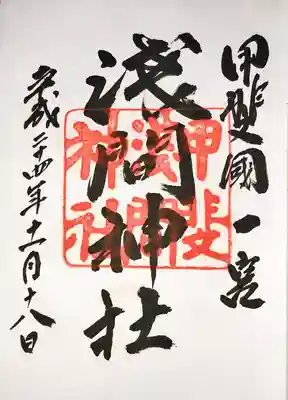 甲斐國一宮
浅間神社
平成二十四年十一月十八日
甲斐
淺間
神社